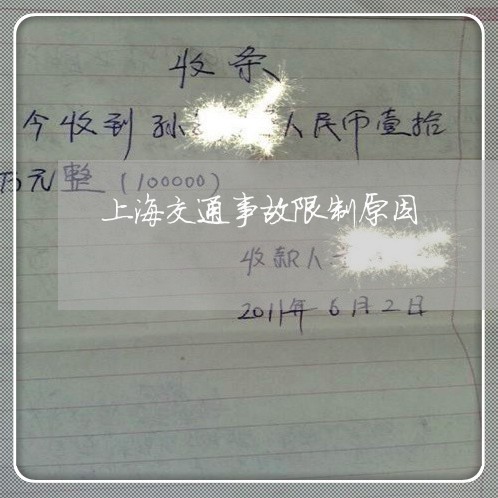 收条
今收到孙 人民币壹拾
万元整(100000)
上海交通事故限制原因
收款人
2011年6月2日